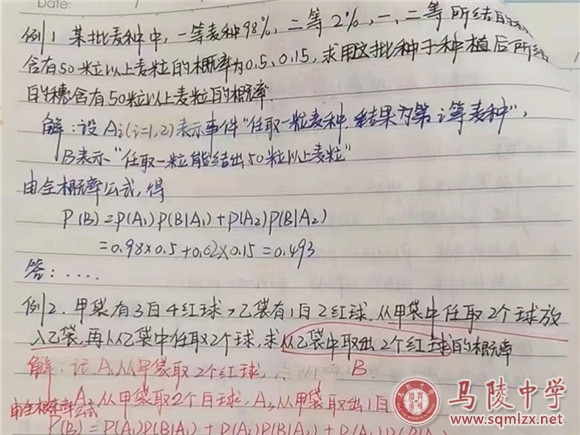 Date:
例1 某批麦种中,一等麦种98%,二等2%,一、二等所结的
含有50粒以上麦粒的概率为0.5、0.15,求用这批种子种植后所结
的穗含有50粒以上麦粒的概率.
解:设Ai(i=1,2)表示事件"任取一粒麦种,结果为第i等麦种",
B表示"任取一粒能结出50粒以上麦粒"
由全概率公式,得
P(B)=P(A₁)P(B|A₁)+P(A₂)P(B|A₂)
=0.98×0.5+0.02×0.15=0.493
答:....
例2.甲袋有3白4红球,乙袋有1白2红球.从甲袋中任取2个球放
入乙袋,再从乙袋中任取2个球,求从乙袋中取出2个红球的概率
解:记A₁从甲袋取2个红球, B.
A₂从甲袋取2个白球,A₃从甲袋取出1白
由全概率公式
P(B)=P(A₁)P(B|A₁)+P(A₂)P(B|A₂)+P(A₃)
马陵中学
www.sqmlzx.net